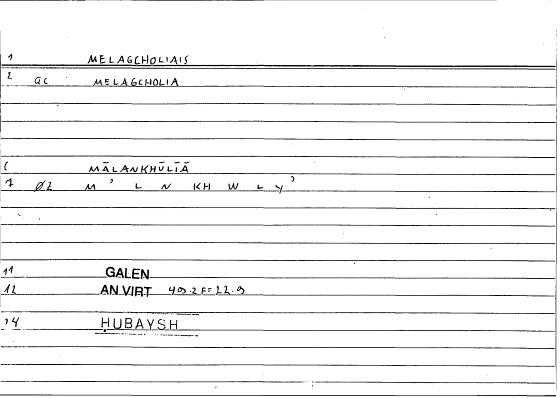 1 MELAGCHOLIAIS
2 GC MELAGCHOLIA
6 MĀLANKHŪLIĀ
7 Ø2 M ' L N KH W L Y '
11 GALEN
12 AN VIRT 49.2 FF 22.9
14 ḤUBAYSH